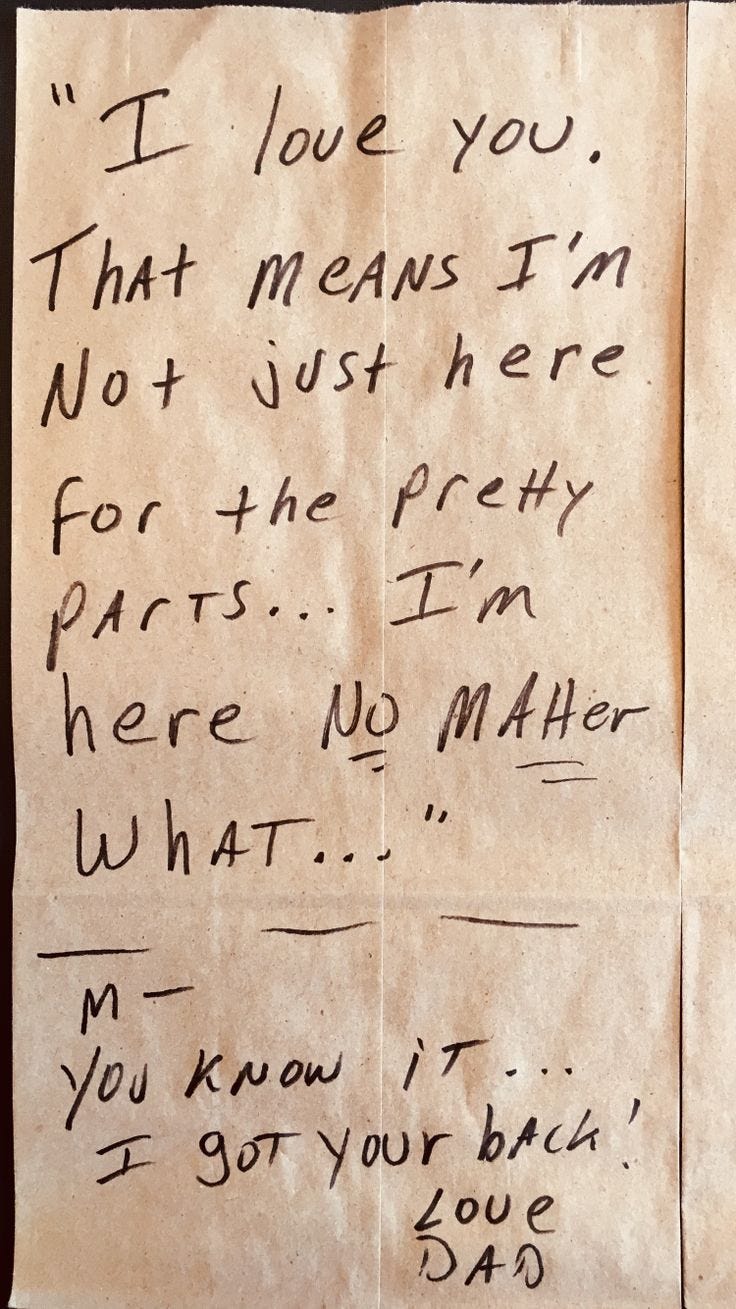 "I love you.
That means I'm
Not just here
for the pretty
parts... I'm
here NO MATTer
WhAT..."
M-
You know iT...
I goT your back!
Love
DAD